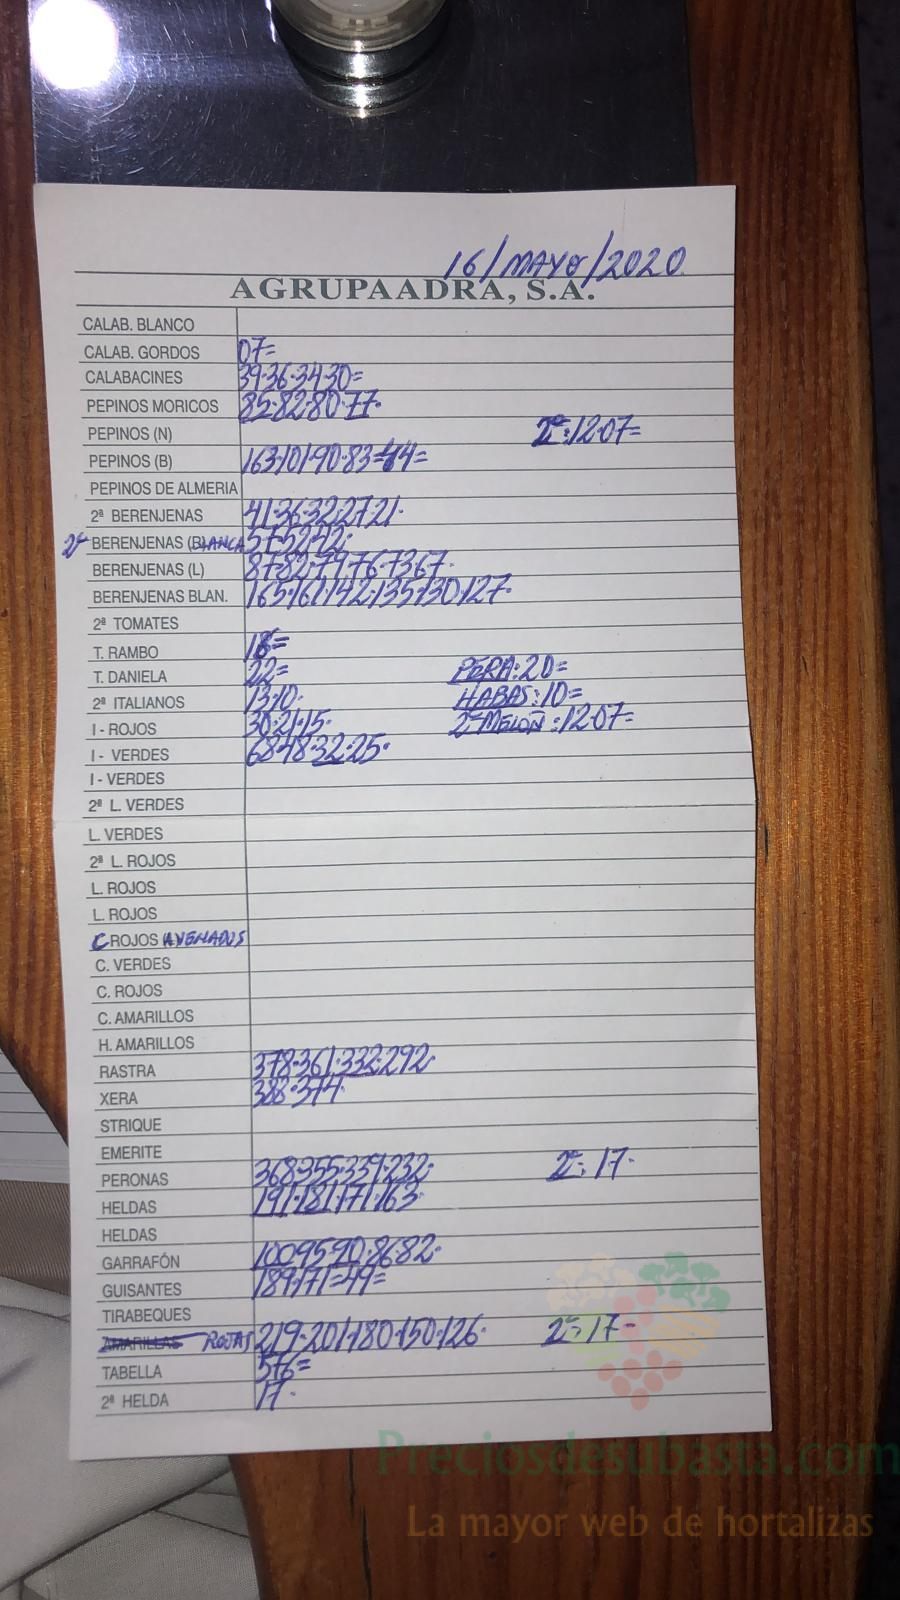 16/MAYO/2020
AGRUPAADRA, S.A.
CALAB. BLANCO
CALAB. GORDOS 07=
CALABACINES 39·36·34·30=
PEPINOS MORICOS 85·82·80·77·
PEPINOS (N) 2ª:12·07=
PEPINOS (B) 163·101·90·83=44=
PEPINOS DE ALMERIA
2ª BERENJENAS 41·36·32·27·21·
2ª BERENJENAS (BLANCA 57·52·42·
BERENJENAS (L) 87·82·79·76·73·67·
BERENJENAS BLAN. 165·161·142·135·130·127·
2ª TOMATES
T. RAMBO
T. DANIELA 22= PERA:20=
2ª ITALIANOS 13·10· HABAS:10=
I - ROJOS 30·21·15· 2ª MELON:12·07=
I - VERDES 68·48·32·25·
I - VERDES
2ª L. VERDES
L. VERDES
2ª L. ROJOS
L. ROJOS
L. ROJOS
C ROJOS ASVENADOS
C. VERDES
C. ROJOS
C. AMARILLOS
H. AMARILLOS
RASTRA 378·361·332·292·
XERA 388·374·
STRIQUE
EMERITE
PERONAS 368·355·339·232· 2ª: 17·
HELDAS 191·181·171·163·
HELDAS
GARRAFÓN 100·95·90·86·82·
GUISANTES 189·171=49=
TIRABEQUES
AMARILLAS ROJAS 219·201·180·150·126· 2ª:17-
TABELLA 576=
2ª HELDA 17·
Preciosdesubasta.com
La mayor web de hortalizas